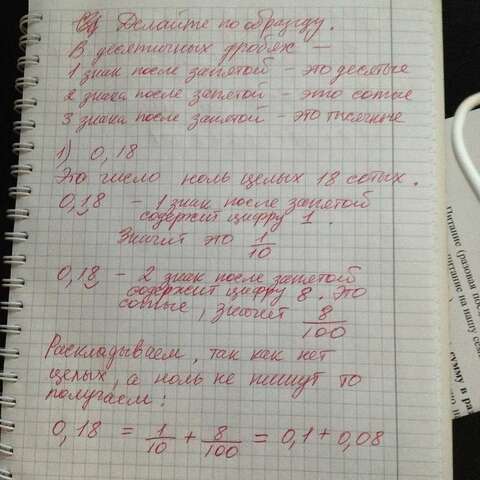 Делайте по образцу.
В десятичных дробях —
1 знак после запятой - это десятые
2 знака после запятой - это сотые
3 знака после запятой - это тысячные
1) 0,18
Это число ноль целых 18 сотых.
0,18 - 1 знак после запятой
содержит цифру 1.
Значит это 1/10
0,18 - 2 знак после запятой
содержит цифру 8. Это
сотые, значит 8/100
Раскладываем, так как нет
целых, а ноль не пишут то
получаем:
0,18 = 1/10 + 8/100 = 0,1 + 0,08
Питание (разовая
питание на нашу
сумму в